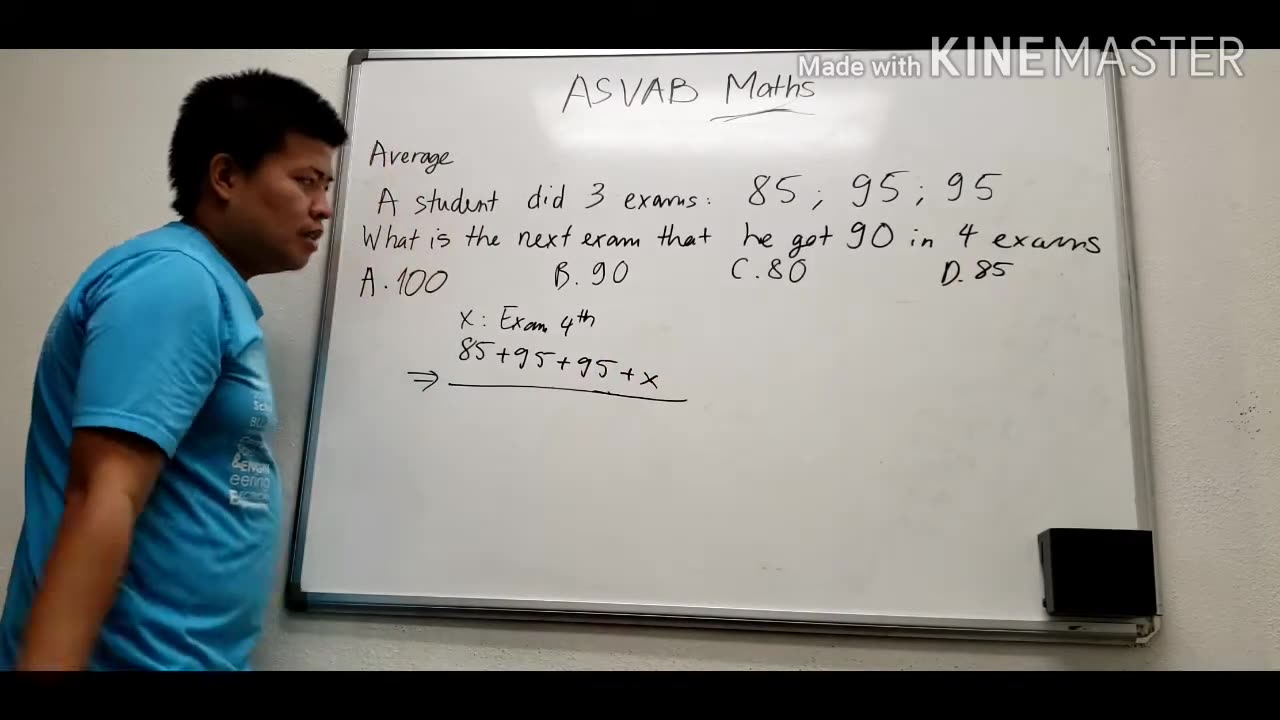 Made with KINEMASTER
ASVAB Maths
Average
A student did 3 exams: 85 ; 95 ; 95
What is the next exam that he got 90 in 4 exams
A. 100 B. 90 C. 80 D. 85
x: Exam 4th
85 + 95 + 95 + x
⇒